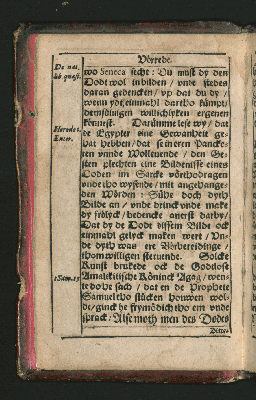 Vörrede.
De nat.
lib. quæst.
wo Seneca secht: Du must dy den
Dodt wol inbilden / vnde stedes
daran gedencken / vp dat du dy /
wenn ydt einmahl dartho kümpt /
demsüluigen willichlyken ergeuen
könnest. Darümme lese wy / dat
Herodot.
Euter.
de Egypter eine Gewanheit ge-
hat hebben / dat se in eren Pancke-
ten vnnde Wolleuende / den Ge-
sten plechten eine Bildenisse eines
Doden im Sarcke vörthodragen
vnde tho wysende / mit angehange-
den Wörden: Sühe doch dyth
Bilde an / vnde drinck vnde make
dy frölyck / bedencke auerst darby /
Dat dy de Dodt dissem Bilde ock
einmahl gelyck maken wert / Vn-
de dyth was ere Vörbereidinge /
thom willigen steruende. Solcke
Kunst brukede ock de Godtlose
Amalekitische Köninck Agag / wen-
1 Sam. 15
te do he sach / dat en de Prophete
Samuel tho stücken houwen wol-
de / ginck he frymödich tho em vnde
sprack: Also moth men des Dodes
Bitter-